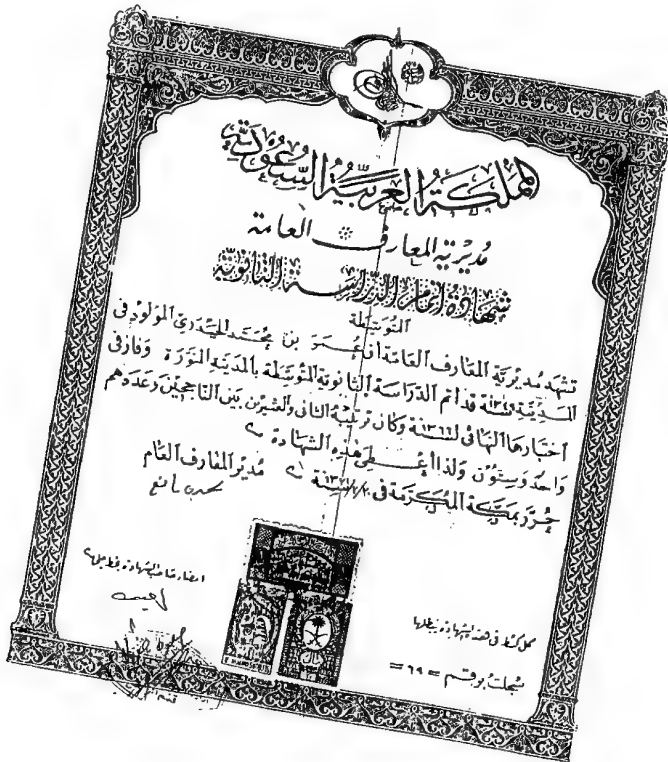 المملكة العربية السعودية
مديرية المعارف العامة
شهادة إتمام الدراسة الثانوية
المتوسطة
تشهد مديرية المعارف العامة أن عمر بن محمد المولود في
المدينة سنة قد أتم الدراسة الثانوية المتوسطة بالمدينة المنورة وفاز في
اختبارها النهائي لسنة ١٣٦٦ وكان ترتيبه الثاني والعشرين بين الناجحين وعددهم
واحد وستون ولذا أعطي هذه الشهادة
حرر بمكة المكرمة في سنة
مدير المعارف العام
امضاء صاحب الشهادة بخط يده
كل كشط في هذه الشهادة يبطلها
سجلت برقم = ٦٩ =